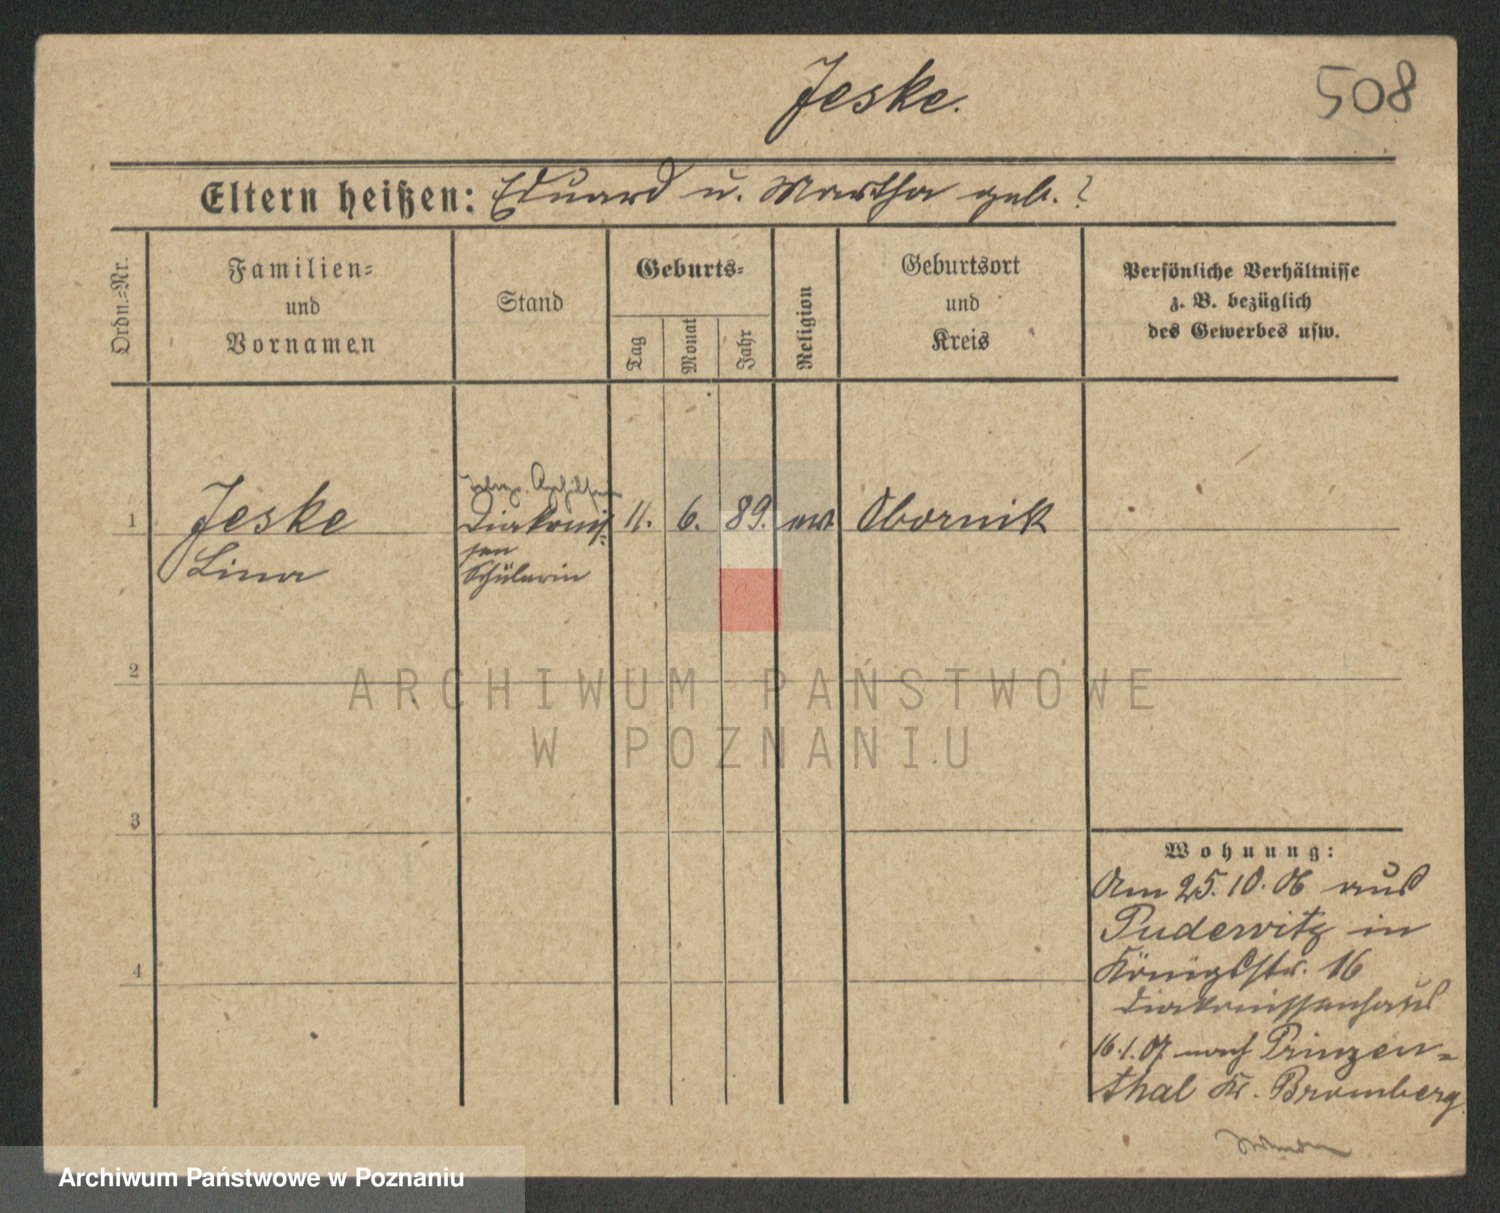 Jeske.
508
Eltern heißen: Eduard u. Martha geb. ?
Ordn.=Nr.
Familien=
und
Vornamen
Stand
Geburts=
Tag
Monat
Jahr
Religion
Geburtsort
und
Kreis
Persönliche Verhältnisse
z. B. bezüglich
des Gewerbes usw.
1 Jeske Diakonis= 11. 6. 89. ev. Obornik
sen
Lina Schülerin
2
3
4
ARCHIWUM PAŃSTWOWE
W POZNANIU
Wohnung:
Am 25. 10. 06 aus
Pudewitz in
Königstr. 16
Diakonissenhaus
16.1.07 nach Prinzen=
thal Kr. Bromberg.
Archiwum Państwowe w Poznaniu